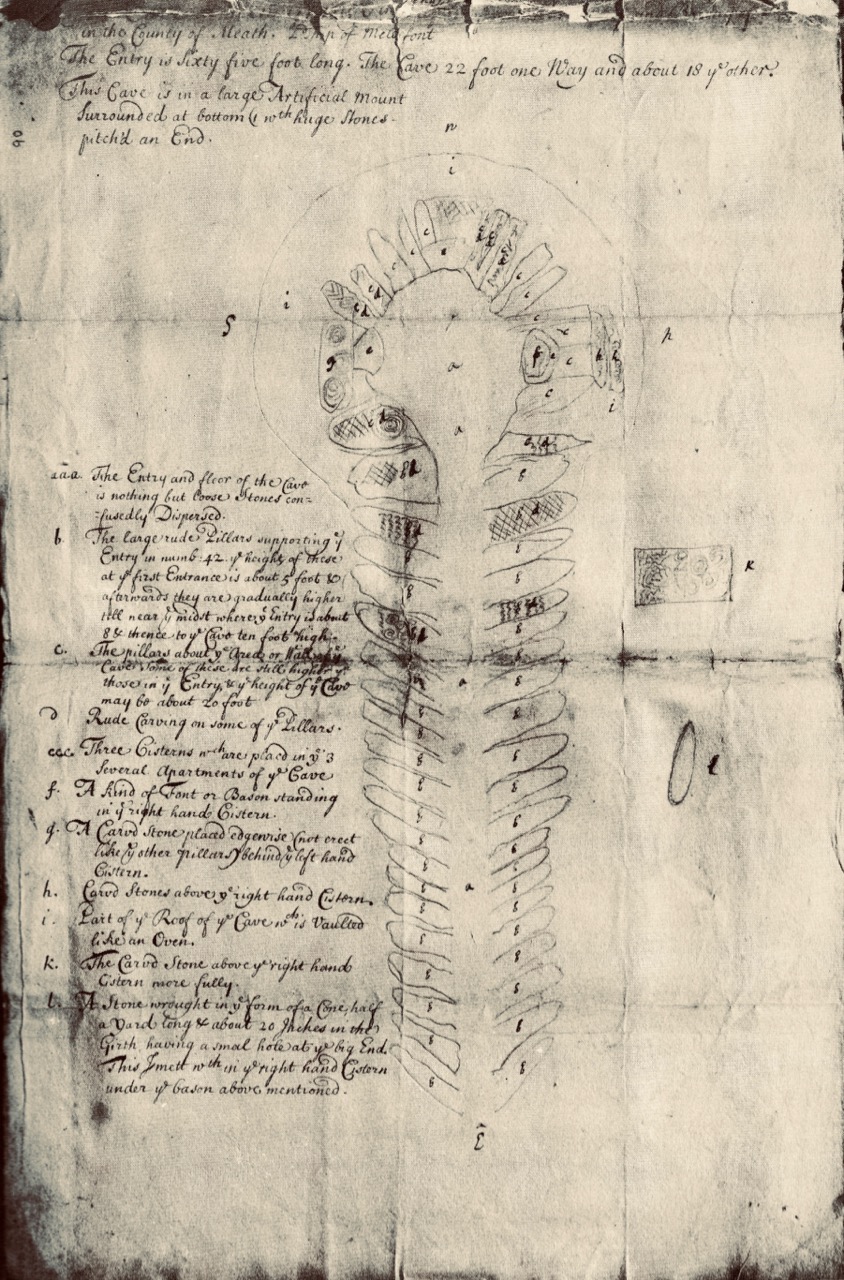 in the County of Meath.
The Entry is Sixty five foot long. The Cave 22 foot one Way and about 18 yᵉ other.
This Cave is in a large Artificial Mount
Surrounded at bottom wᵗʰ huge Stones
pitch'd an End.
90
n
i
i
S
a
a
p
i
aaa. The Entry and floor of the Cave
is nothing but loose Stones con=
=fusedly Dispersed.
b. The large rude Pillars supporting yᵉ
Entry in numb: 42. yᵉ height of these
at yᵉ first Entrance is about 5 foot &
afterwards they are gradually higher
till near yᵉ midst where yᵉ Entry is about
8 & thence to yᵉ Cave ten foot high.
c. The pillars about yᵉ Area or Wall of yᵉ
Cave some of these are still higher yⁿ
those in yᵉ Entry, & yᵉ height of yᵉ Cave
may be about 20 foot
D Rude Carving on some of yᵉ Pillars.
eee. Three Cisterns wᶜʰ are placd in yᵉ 3
Several Apartments of yᵉ Cave
f. A kind of Font or Bason standing
in yᵉ right hand Cistern.
g. A Carvd Stone placed edgewise (not erect
like yᵉ other pillars) behind yᵉ left hand
Cistern.
h. Carvd Stones above yᵉ right hand Cistern.
i. Part of yᵉ Roof of yᵉ Cave wᶜʰ is Vaulted
like an Oven.
k. The Carvd Stone above yᵉ right hand
Cistern more fully.
l. A Stone wrought in yᵉ form of a Cone, half
a Yard long & about 20 Inches in the
Girth, having a smal hole at yᵉ big End.
This I mett wᵗʰ in yᵉ right hand Cistern
under yᵉ bason above mentioned.
k
l
a
a
E